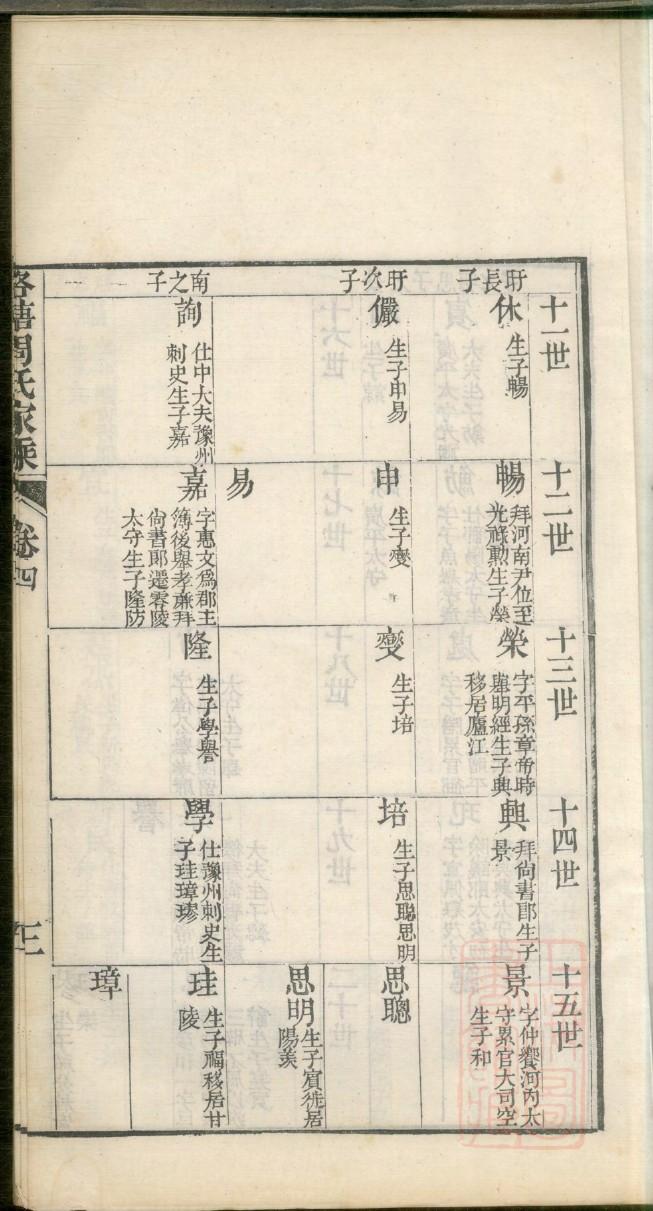 十一世
盱長子
休
生子暢
盱次子
儼
生子申易
南之子
詢
仕中大夫豫州
刺史生子嘉
十二世
暢
拜河南尹位至
光祿勲生子榮
申
生子燮
易
嘉
字惠文爲郡主
簿後舉孝亷拜
尙書郞遷零陵
太守生子隆防
十三世
榮
字平孫章帝時
明經生子興
移居廬江
燮
生子培
隆
生子學譽
十四世
興
拜尙書郞生子
景
培
生子思聰思明
學
仕豫州刺史生
子珪璋璆
十五世
景
字仲饗河內太
守累官大司空
生子和
思聰
思明
生子賔徙居
陽羨
珪
生子福移居甘
陵
璋
周氏家乘
卷四
三